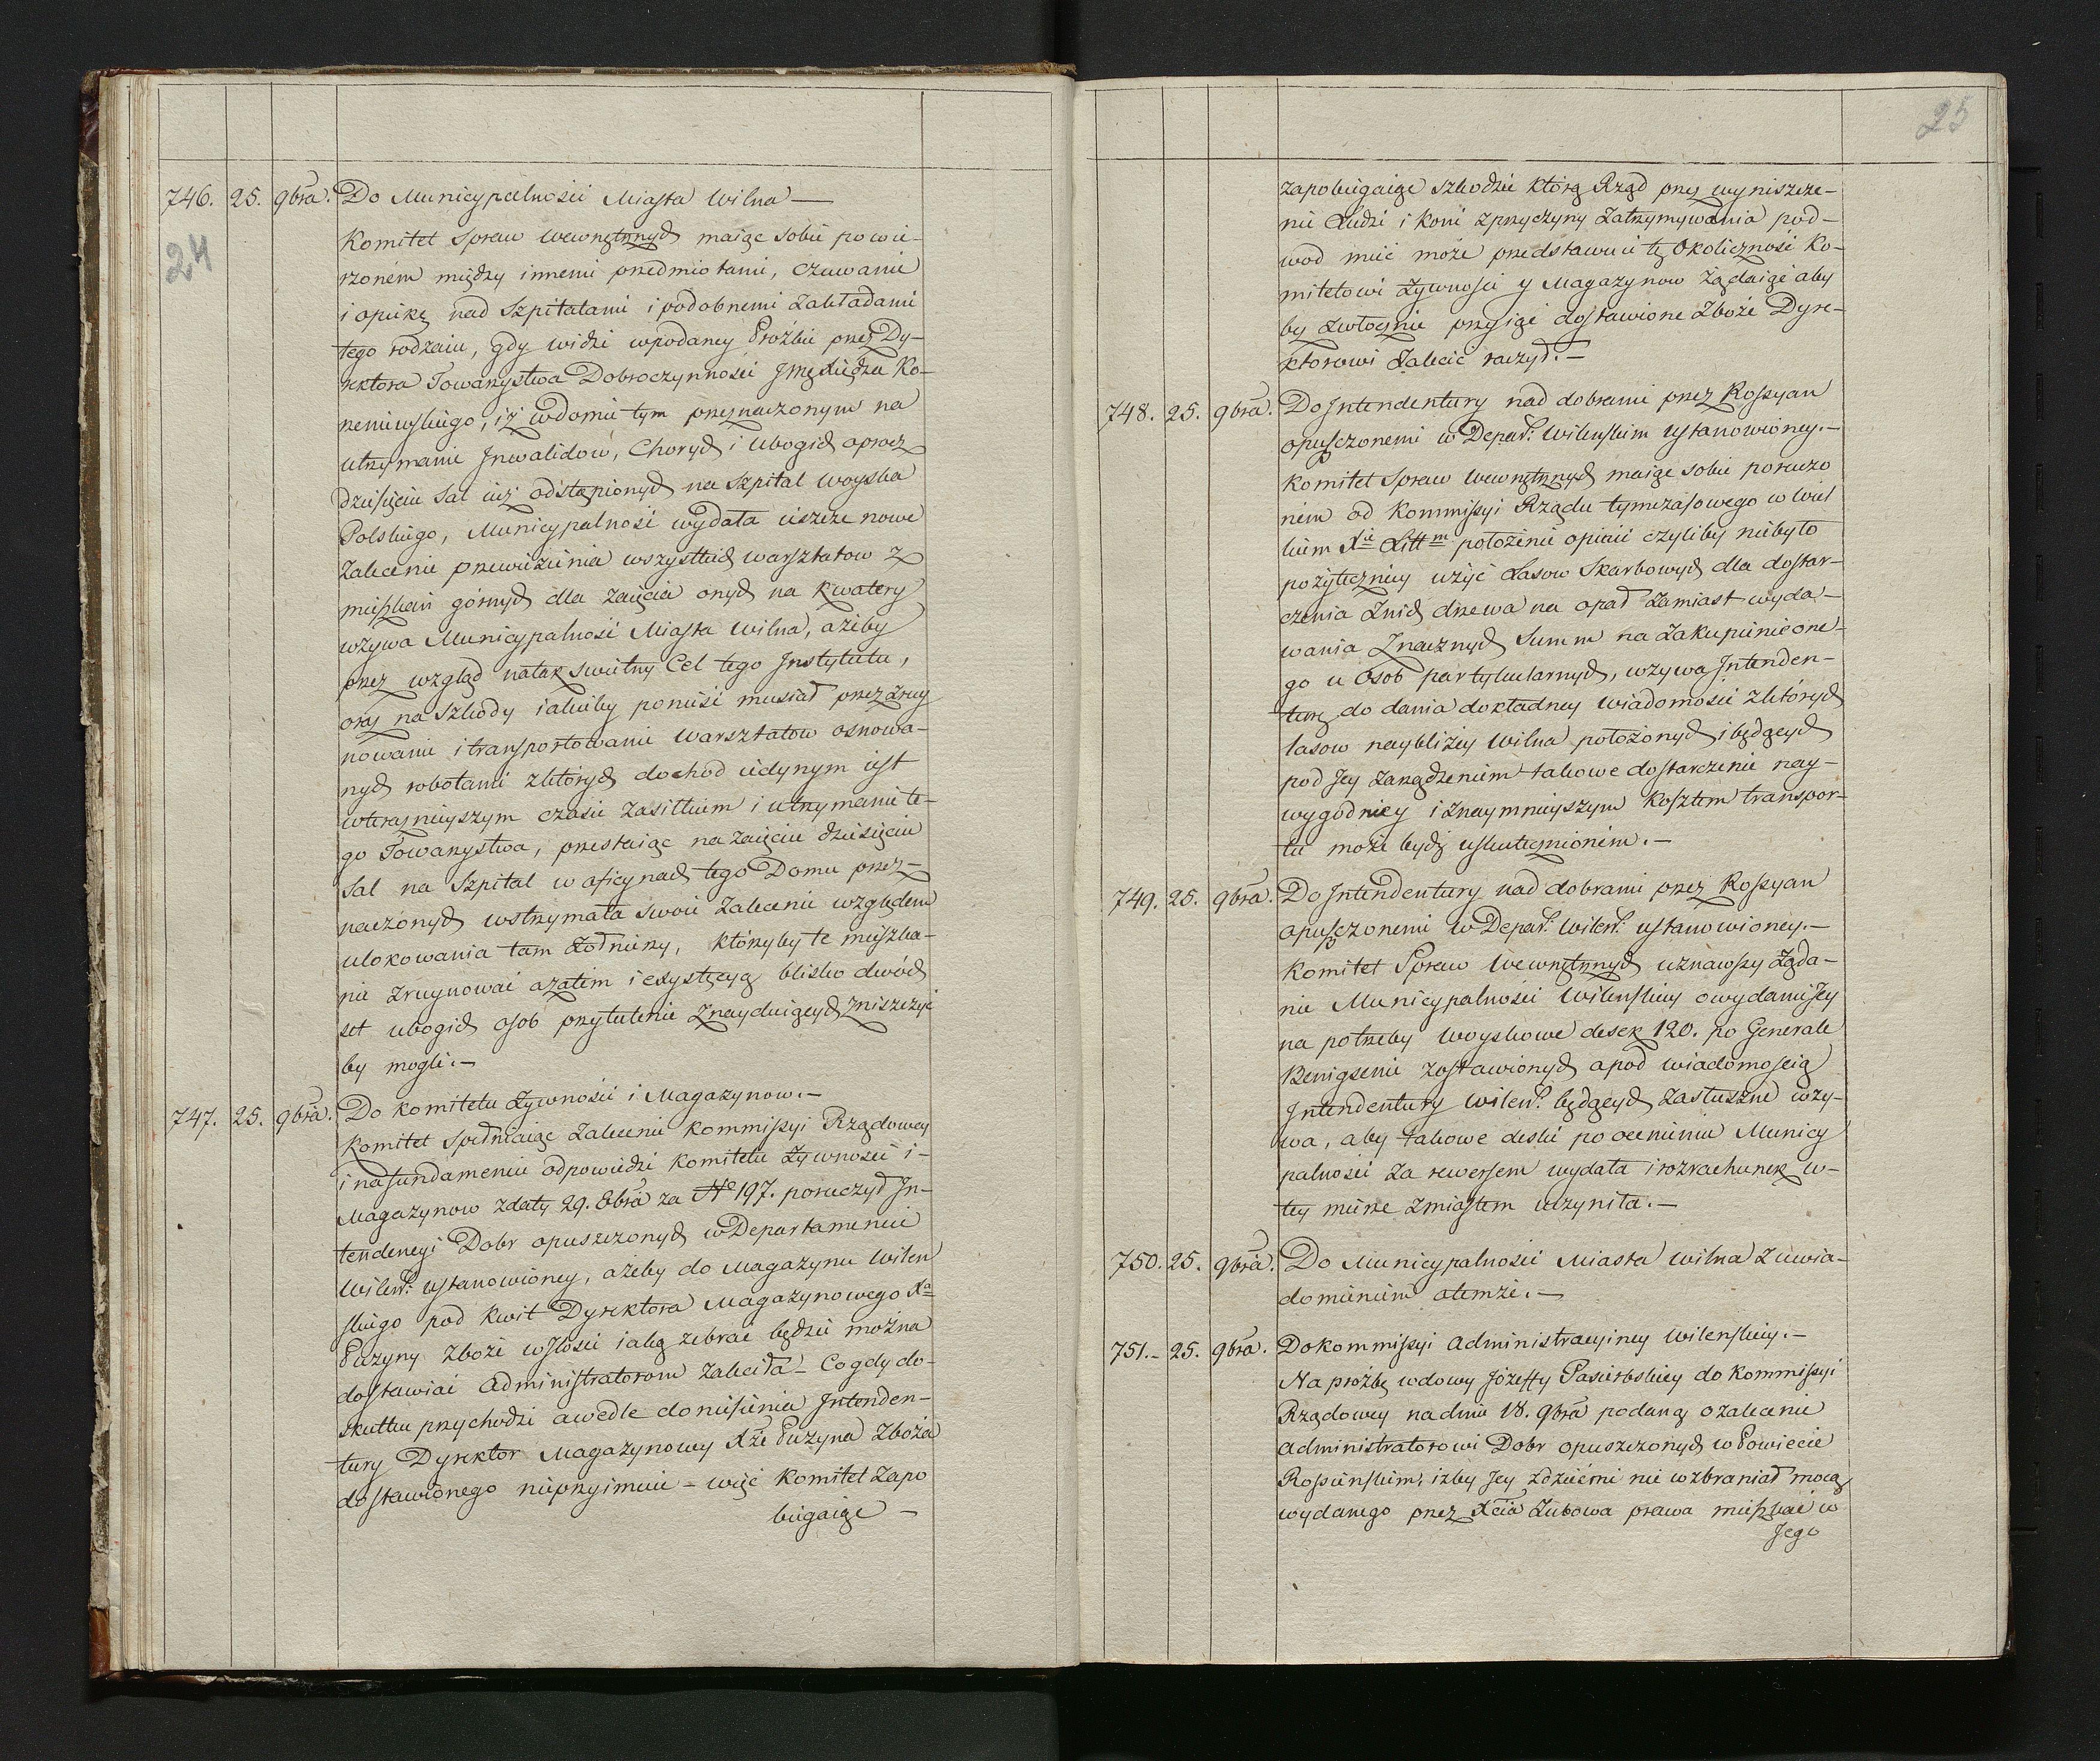 746. 25. 9bra. Do Municypalności Miasta Wilna —
24
Komitet Spraw Wewnętrznych maiąc sobie powie-
rzoném między innemi przedmiotami, czuwanie
i opiekę nad Szpitalami i podobnemi Zakładami
tego rodzaiu, gdy widzi wpodaney Proźbie przez Dy-
rektora Towarzystwa Dobroczynności Jmę Xiędza Ko-
rzeniewskiego, iż wdomie tym przeznaczonym na
utrzymanie Jnwalidow, Chorych i Ubogich oprocz
dziesięciu Sal iuż odstąpionych na Szpital Woyska
Polskiego, Municypalność wydała ieszcze nowe
Zalecenie przewiezienia wszystkich warsztatow z
mieszkań górnych dla zaięcia onych na Kwatery
wzywa Municypalność Miasta Wilna, ażeby
przez wzgląd natak swietny Cel tego Jnstytutu,
oraz na Szkody iakieby ponieść musiał przez zruy
nowanie i transportowanie Warsztatow osnowa-
nych robotami zktórych dochod iedynym iest
wterazniejszym czasie zasiłkiem i utrzymanie te-
go Towarzystwa, przestaiąc na zaięciu dziesięciu
Sal na Szpital w oficynach tego Domu prze-
naczonych wstrzymała swoie Zalecenie względem
ulokowania tam Żołnierzy, którzyby te mieszka-
nie zruynować azatém i exystęcyą blisko dwóch
set ubogich osob przytulenie znayduiących zniszczyć
by mogli. —
747. 25. 9bra. Do Komitetu Żywności i Magazynow. —
Komitet spełniaiąc Zalecenie Kommissyi Rządowey
i na fundamencie odpowiedzi Komitetu Żywności i -
Magazynow zdaty 29. 8bra za No 197. poruczył Jn-
tendencyi Dobr opuszczonych w Departamencie
Wileń: ustanowioney, ażeby do Magazynu Wileń
skiego pod Kwit Dyrektora Magazynowego Xa
Puzyny zboże wilości iaką zebrać będzie można
dostawiać Administratorom Zaleciła - Co gdy do -
skutku przychodzi awedle doniesienia Jntenden-
tury Dyrektor Magazynowy Xże Puzyna Zboża
dostawionego nieprzyimuie - więc Komitet Zapo
biegaiąc —
25
zapobiegaiąc szkodzie którą Rząd przez wyniszcze-
nie Ludzi i koni zprzyczyny Zatrzymywania pod-
wod mieć może przedstawuie tę Okoliczność Ko-
mitetowi Żywności y Magazynow żądaiąc aby
by Zwłocznie przyiąć dostawione Zboże Dyre-
ktorowi Zalecić raczył. —
748. 25. 9bra. Do Jntendentury nad dobrami przez Rossyan
opuszczonemi w Depar: Wileńskim ustanowioney. —
Komitet Spraw Wewnętrznych maiąc sobie poruczo
ném od Kommissyi Rządu tymczasowego w Wiel
kiem Xie Litt m położenie opinii czyliby niebyło
pożyteczniey użyć Lasow Skarbowych dla dostar-
czenia Znich drzewa na opał Zamiast wyda-
wania Znacznych Summ na Zakupienie one-
go u Osob partykularnych, wzywa Jntenden-
turę do dania dokładney wiadomości zktórych
lasow naybliżey Wilna położonych i będących
pod Jey Zarządzeniem takowe dostarczenie nay-
wygodniey i Znaymnieyszym kosztem transpor-
tu może bydź uskutecznioném. —
749. 25. 9bra. Do Jntendentury nad dobrami przez Rossyan
opuszczonemi w Depar: Wileń: ustanowioney. —
Komitet Spraw Wewnętrznych uznawszy Żąda-
nie Municypalności Wileńskiey o wydanie Jey
na potrzeby Woyskowe desek 120. po Generale
Benigsenie zostawionych a pod wiadomością
Jntendentury Wileń: będących Zasłuszne wzy-
wa, aby takowe deski po ocenieniu Municy
palności Za rewersem wydała i rozrachunek w-
tey mierze zmiastem uczyniła. —
750. 25. 9bra. Do Municypalności Miasta Wilna Zuwia-
domieniem otemże. —
751. - 25. 9bra. Do Kommissyi Administracyiney Wileńskiey. —
Na proźbę wdowy Józeffy Pasierbskiey do Kommissyi
Rządowey na dniu 18. 9bra podaną o zalecenie
Administratorowi Dobr opuszczonych w Powiecie
Rossieńskim, iżby Jey zdziećmi nie wzbraniał mocą
wydanego przez Xcia Zubowa prawa mieszkać w
Jego